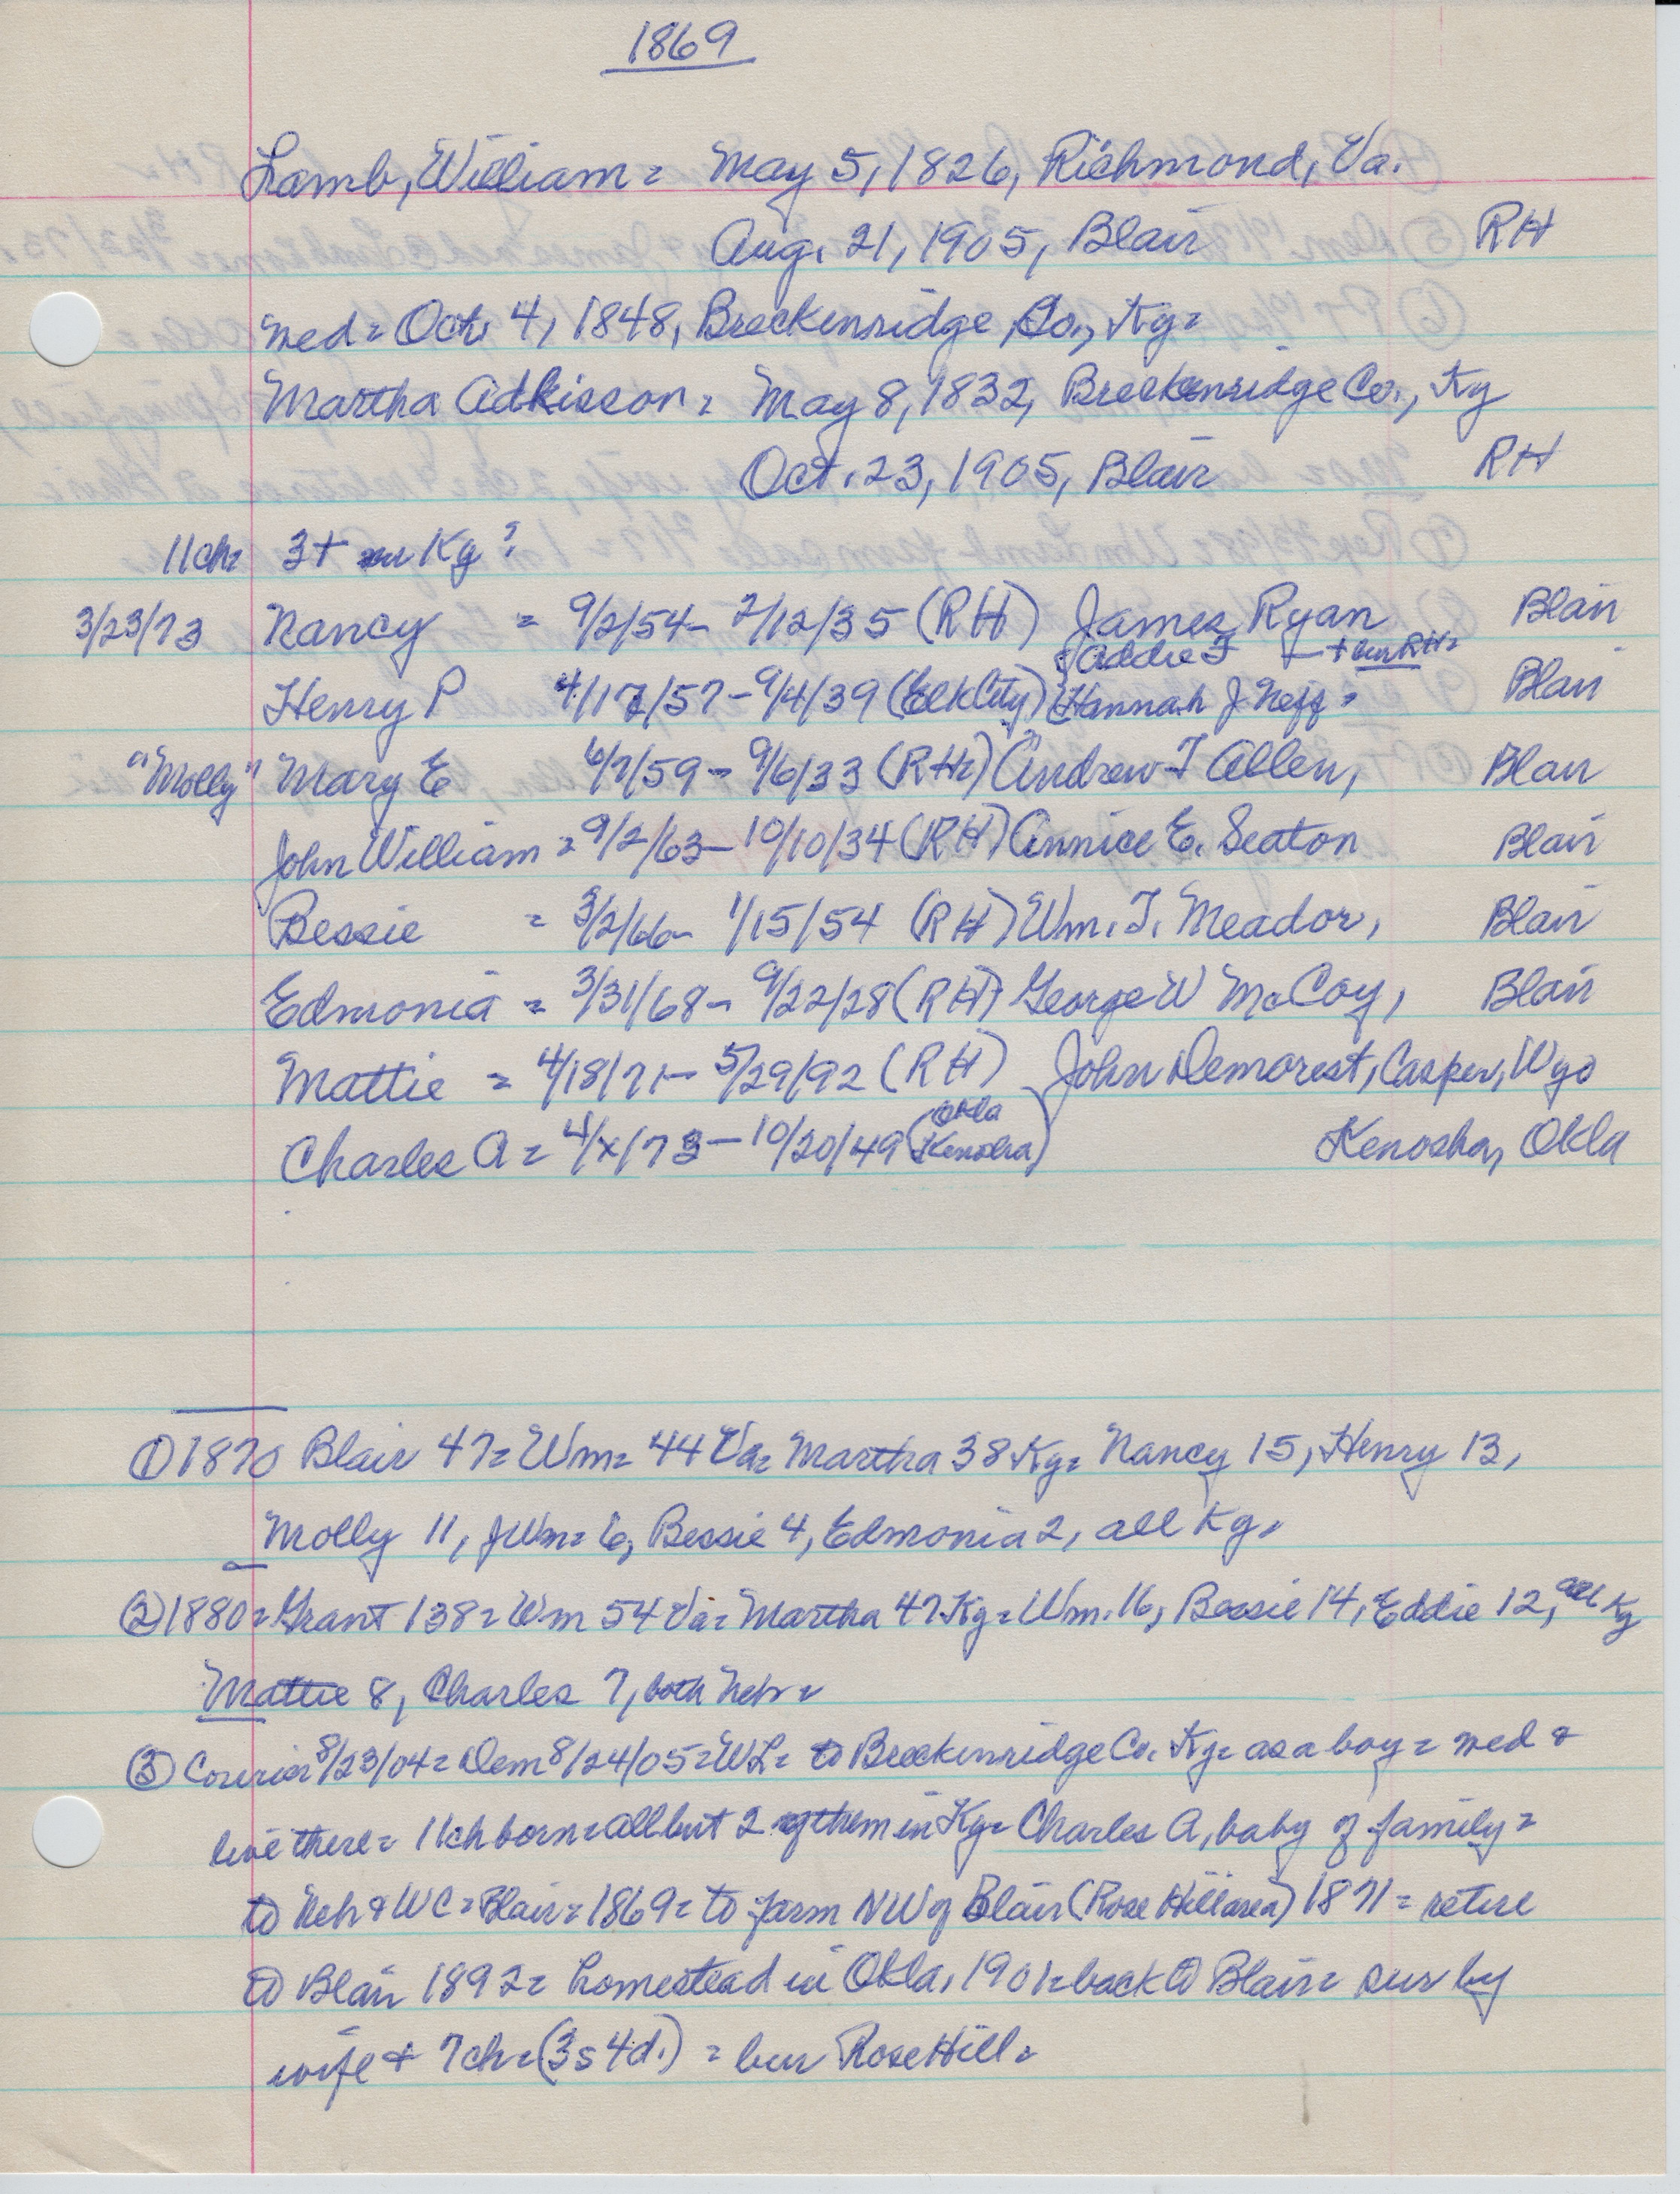 1869
Lamb, William = May 5, 1826, Richmond, Va.
Aug. 21, 1905, Blair RH
med = Oct. 4, 1848, Breckenridge Co., Ky =
Martha Adkisson = May 8, 1832, Breckenridge Co., Ky
Oct. 23, 1905, Blair RH
11 ch = 3+ Ky ?
3/23/73 Nancy = 9/2/54 - 2/12/35 (RH) James Ryan Blair
Addie F + bur RH =
Henry P 4/17/57 - 9/4/39 (Elk City) Hannah J Neff = Blair
"Molly" Mary E 6/7/59 - 9/6/33 (RH) Andrew T Allen, Blair
John William = 9/2/63 - 10/10/34 (RH) Annice E. Seaton Blair
Bessie = 3/2/66 - 1/15/54 (RH) Wm. T. Meador, Blair
Edmonia = 3/31/68 - 9/22/28 (RH) George W McCoy, Blair
Mattie = 4/18/71 - 5/29/92 (RH) John Demorest, Casper, Wyo
Okla
Charles A = 4/x/73 - 10/20/49 (Kenosha) Kenosha, Okla
① 1870 Blair 47 = Wm = 44 Va = Martha 38 Ky = Nancy 15, Henry 13,
Molly 11, J Wm = 6, Bessie 4, Edmonia 2, all Ky.
② 1880 = Grant 138 = Wm 54 Va = Martha 47 Ky = Wm. 16, Bessie 14, Eddie 12, all Ky
Mattie 8, Charles 7, both Neb =
③ Courier 8/23/04 = Dem 8/24/05 = WL = to Breckenridge Co. Ky = as a boy = med &
live there = 11 ch born = all but 2 of them in Ky = Charles A, baby of family =
to Neb & WC = Blair = 1869 = to farm NW of Blair (Rose Hill area) 1871 = retire
to Blair 1892 = homestead in Okla, 1901 = back to Blair = sur by
wife + 7 ch = (3s 4d.) = bur Rose Hill =